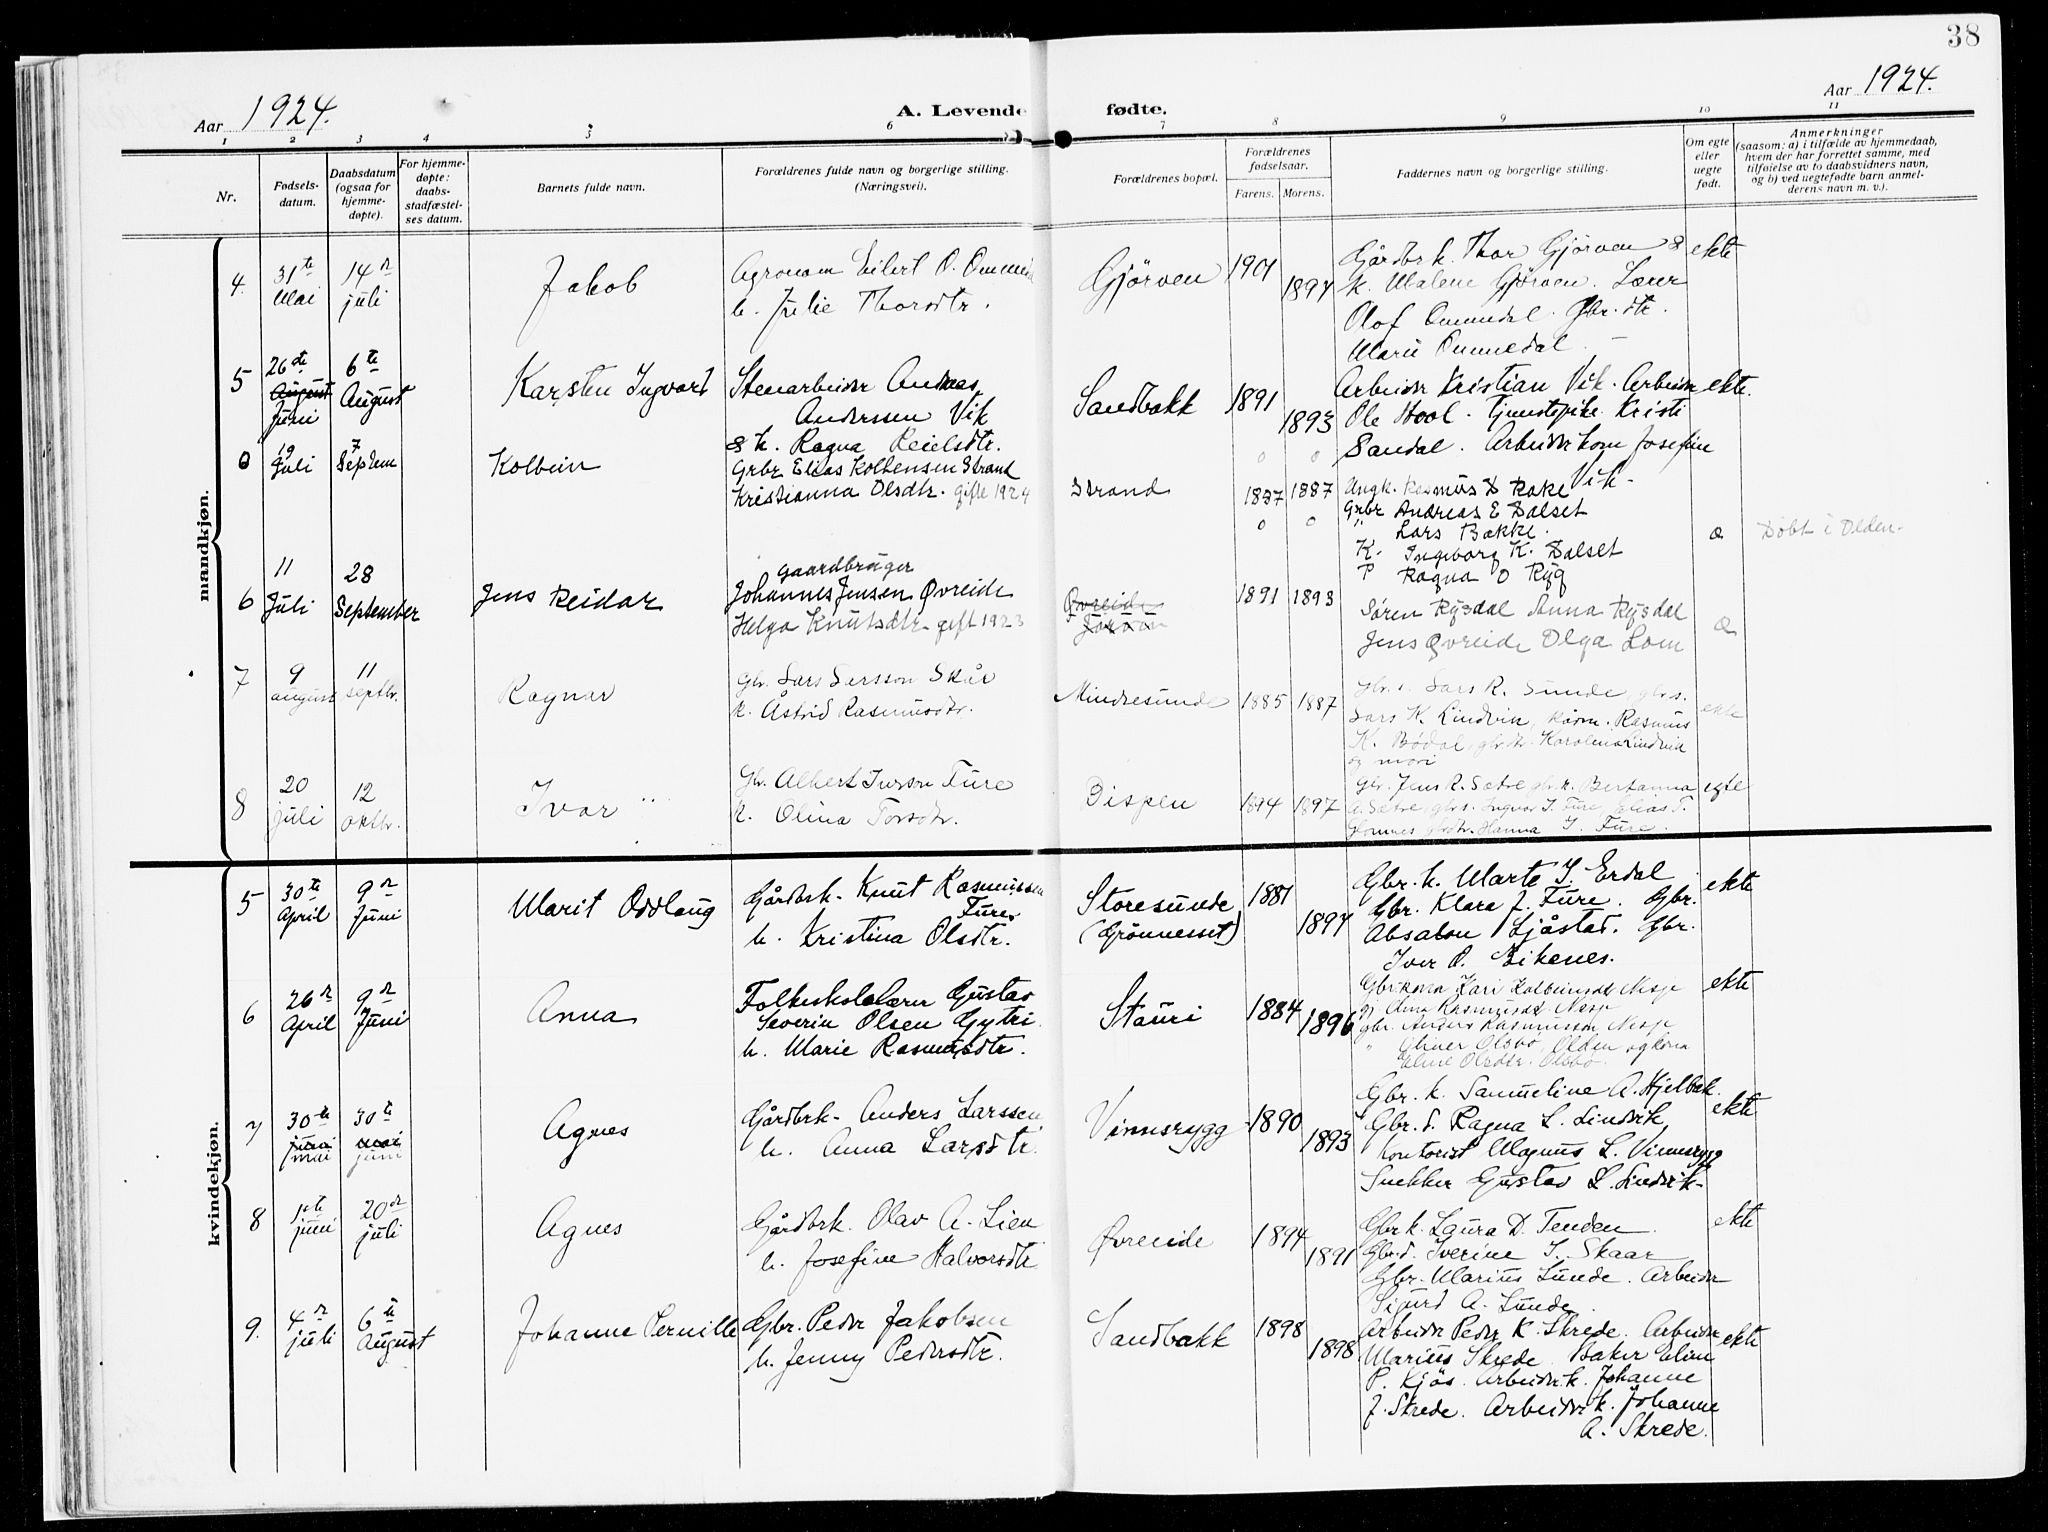 38
Aar 1924.
A. Levende fødte.
Aar 1924.
1 2 3 4 5 6 7 8 9 10 11
Nr.
Fødsels-
datum.
Daabsdatum
(ogsaa for
hjemme-
døpte).
For hjemme-
døpte:
daabs-
stadfæstel-
ses datum.
Barnets fulde navn.
Forældrenes fulde navn og borgerlige stilling.
(Næringsvei).
Forældrenes bopæl.
Forældrenes
fødselsaar.
Farens. Morens.
Faddernes navn og borgerlige stilling.
Om egte
eller
uegte
født.
Anmerkninger
(saasom: a) i tilfælde av hjemmedaab,
hvem der har forrettet samme, med
tilføielse av to daabsvidners navn,
og b) ved uegtefødte barn anmel-
derens navn m. v.).
mandkjøn.
4.
31te
Mai
14de
juli
Jakob
Agronom Eilert O.
h. Julie Thorsdtr.
Gjörven
1901
1897
Gårdbrk. Thor Gjörven &
k. Malene Gjörven. Lærer
Olof Ommedal. Gbr.dtr.
Marie Ommedal.
ekte
5
26de
August
Juni
6te
August
Karsten Ingvard
Stenarbeider Andreas
Anderssen Vik
& h. Ragna Reielsdtr.
Sandbakk
1891
1893
Arbeider Kristian Vik. Arbeider
Ole Hool. Tjenstepike Kristi
Sandal. Arbeider kone Josefine
Vik.
ekte.
19
Juli
7
Septem
Kolbein
Grbr Elias Kolbensen Strand
Kristianna Olsdtr. gifte 1924
Strand
1887 1887
Ungk. Rasmus D Rake
Grbr Andreas E Dalset
" Lars Bakke.
K. Ingeborg K. Dalset
P Ragna O Ryg
æ
Döbt i Olden.
6
11
Juli
28
September
Jens Reidar
gaardbruger
Johannes Jensen Øvreide
Helga Knutsdtr. gift 1923
Øvreide
1891 1893
Sören Rysdal Anna Rysdal
Jens Øvreide Olga Lom
æ
7
9
august
11
septbr.
Ragnar
Gbr. Lars Larsson Skår
k. Åstrid Rasmusdtr.
Mindresunde
1885 1887
Gbr. s. Lars R. Sunde, gbr. s.
Lars K. Lindvik, Rasmus
K. Bödal, gbr.dtr. Karolina Lindvik
og mori
ekte
8
20
juli
12
oktbr.
Ivar
Gbr. Albert Iversen Fure
k. Olina Torsdtr.
Bispen
1894 1897
Gbr. Jens R. Sætre gbr.k. Bertanna
A. Sætre, gbr.s. Ingvar I. Fure, Elias T.
Glomnes gbrdtr. Hanna I. Fure.
egte
kvindekjøn.
5
30te
April
9de
Juni
Marit Oddlaug
Gårdbrk. Knut Rasmussen
Fure
h. Kristina Olsdtr.
Storesunde
(Grönneset)
1881
1897
Gbr. k. Marte I. Erdal
Gbr. Klara J. Fure. Gbr.
Absalon Sjåstad. Gbr.
Iver O. Eikenes.
ekte
6
26de
April
9de
Juni
Anna
Folkeskolelærer Gustav
Severin Olsen Gytri
h. Marie Rasmusdtr.
Stauri
1884
1896
Gbrkona Kari Kolbeinsdtr Nesje
Rasmusdtr Nesje
gbr. Anders Rasmusson Nesje
" Oliner Olsbö, Olden og kona
Eline Olsdtr. Olsbö.
ekte
7
30te
juni
mai
30te
mai
juni
Agnes
Gårdbrk. Anders Larssen
h. Anna Larsdtr.
Vinnsrygg
1890
1893
Gbr. k. Samueline A. Hjelbak.
Gbr. d. Ragna L. Lindvik
Kontorist Magnus L. Vinnsrygg
Snekker Gustav L. Lindvik.
ekte
8
1ste
juni
20de
juli
Agnes
Gårdbrk. Olav A. Lien
h. Josefine Halvorsdtr
Øvreide
1894
1891
Gbr k. Laura D. Tenden
Gbr.d. Iverine I. Skaar
Gbr. Marius Sunde. Arbeider
Sigurd A. Sunde.
ekte
9.
4de
juli
6te
August
Johanne Pernille
Gbr. Peder Jakobsen
h. Jenny Pedersdtr.
Sandbakk
1898
1898
Arbeider Peder K. Skrede. Arbeider
Marius Skrede. Baker Elim
P. Kjös. Arbeider k. Johanne
J. Skrede. Arbeider k. Johanne
A. Skrede.
ekte